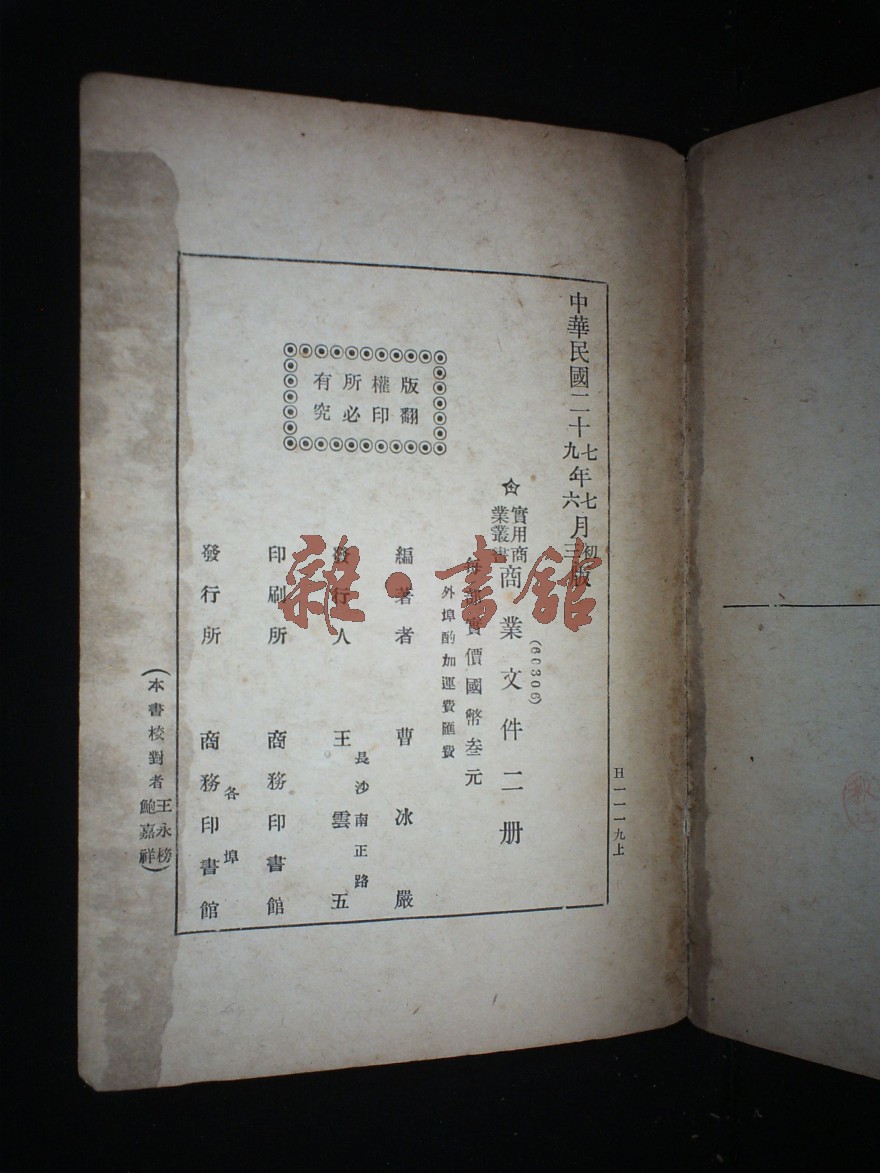 中華民國二十七年七月初版
九年六月三版
版權所有
翻印必究
(60306)
☆實用商業叢書 商業文件二册
每部實價國幣叁元
外埠酌加運費匯費
編著者 曹冰嚴
發行人 王雲五
長沙南正路
印刷所 商務印書館
發行所 商務印書館
各埠
(本書校對者 王永榜 鮑嘉祥)
H一一一九上
雜·書館